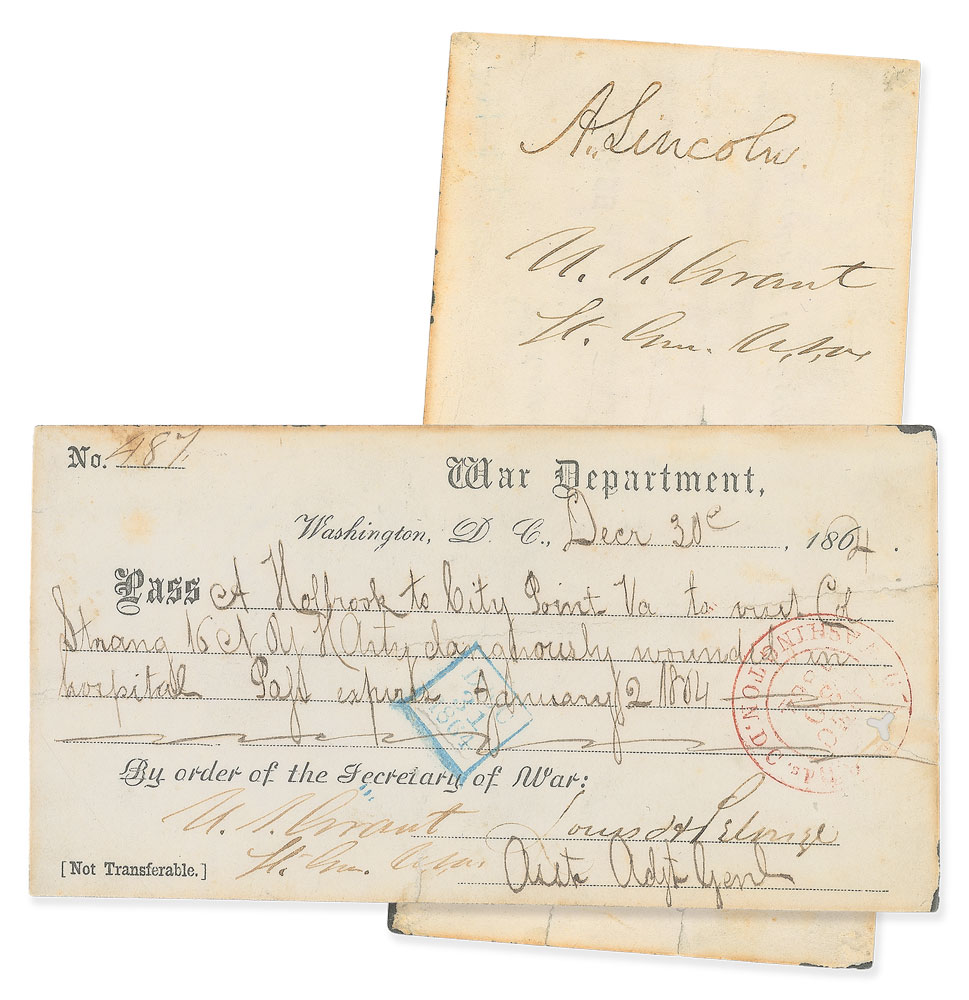 A. Lincoln.
U. S. Grant
Lt. Gen. U.S.A.
No. 487,
War Department,
Washington, D. C., Decr 30th, 1864.
Pass A Holbrook to City Point Va to visit Col
Strang 16 N Y H Arty dangerously wounded in
hospital Pass expires January 2 1864
By order of the Secretary of War:
U. S. Grant
Lt. Gen. U.S.A.
Louis H Pelouze
Asst Adjt Genl
[Not Transferable.]
WASHINGTON, D.C.
1864